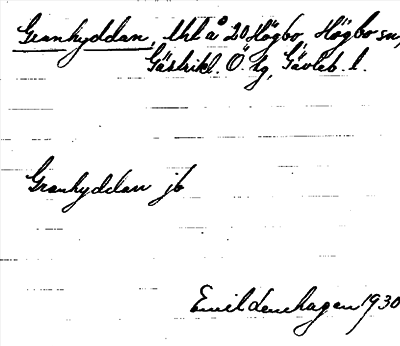 Granhyddan, lht å 20 Högbo, Högbo sn,
Gästrikl. Ö. tg, Gävleb. l.
Granhyddan jb
Emil denehagen 1930